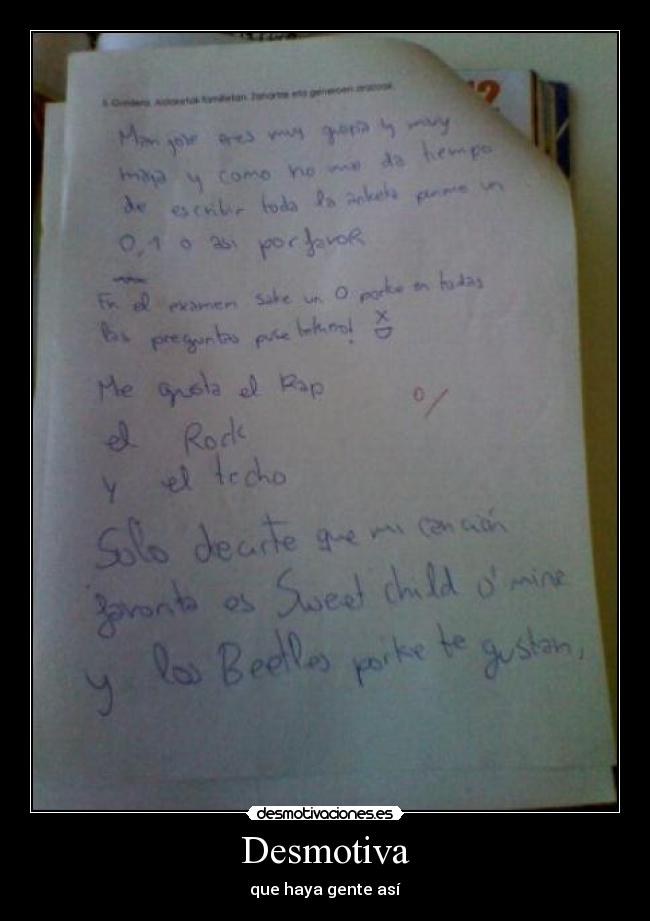 5. Galdera. Aldaketak familietan. Zahartze eta generoen arazoak.
Mari jose eres muy guapa y muy
maja y como no me da tiempo
de escribir toda la ankets ponme un
0,1 o asi por favor
En el examen sake un 0 porke en todas
las preguntas puse
X
D
Me gusta el Rap
el Rock
y el techo
0/
Solo decirte que mi canción
favorita es Sweet child o' mine
y los Beetles porke te gustan,
desmotivaciones.es
Desmotiva
que haya gente así